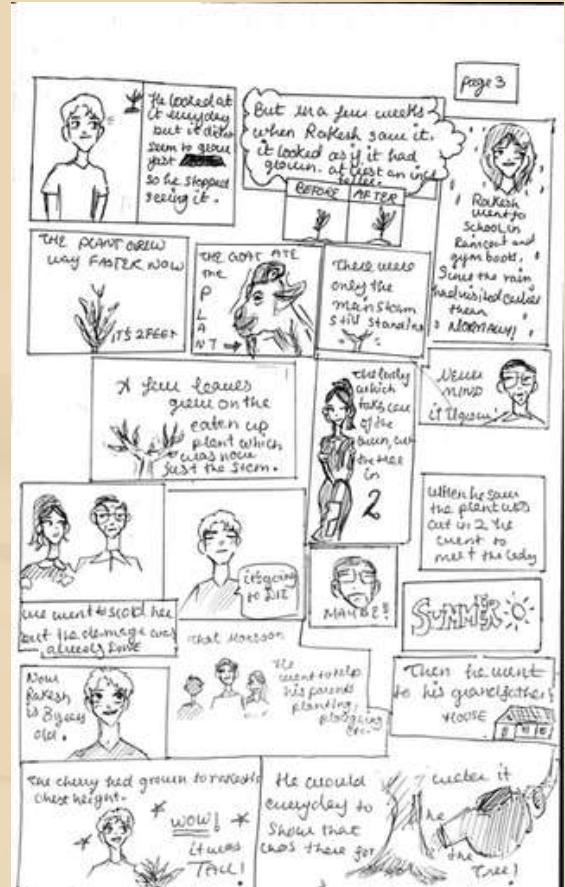 page 3
He looked at
it everyday
but it didnt
seem to grow
fast
so he stopped
seeing it.
But in a few weeks
when Rakesh saw it,
it looked as if it had
grown. at lest an inch
taller.
BEFORE
AFTER
Rakesh
went to
School in
Raincoat and
gym boots,
Since the rain
had visited earlier
than
NORMALY!
THE PLANT GREW
way FASTER NOW
IT'S 2 FEET
THE GOAT ATE
the
PLANT
There were
only the
main steam
still standing
A few leaves
grew on the
eaten up
plant which
was now
just the stem.
The lady
which
taks care
of the
the tree
in
2
NEVER
MIND
it'll grow!
When he saw
the plant was
cut in 2 he
went to
meet the lady
He went to scold her
but the damage was
already DONE
it's going
to DIE
MAYBE!!
SUMMER
Now
Rakesh
is 8 year
old.
That Monsoon
He
went to help
his parents
planting,
ploughing
etc.
Then he went
to his grandfather's
HOUSE
The cherry had grown to rakesh's
chest height.
WOW!
it was
TALL!
He would water it
everyday to
Show that he
was there for the
Tree!